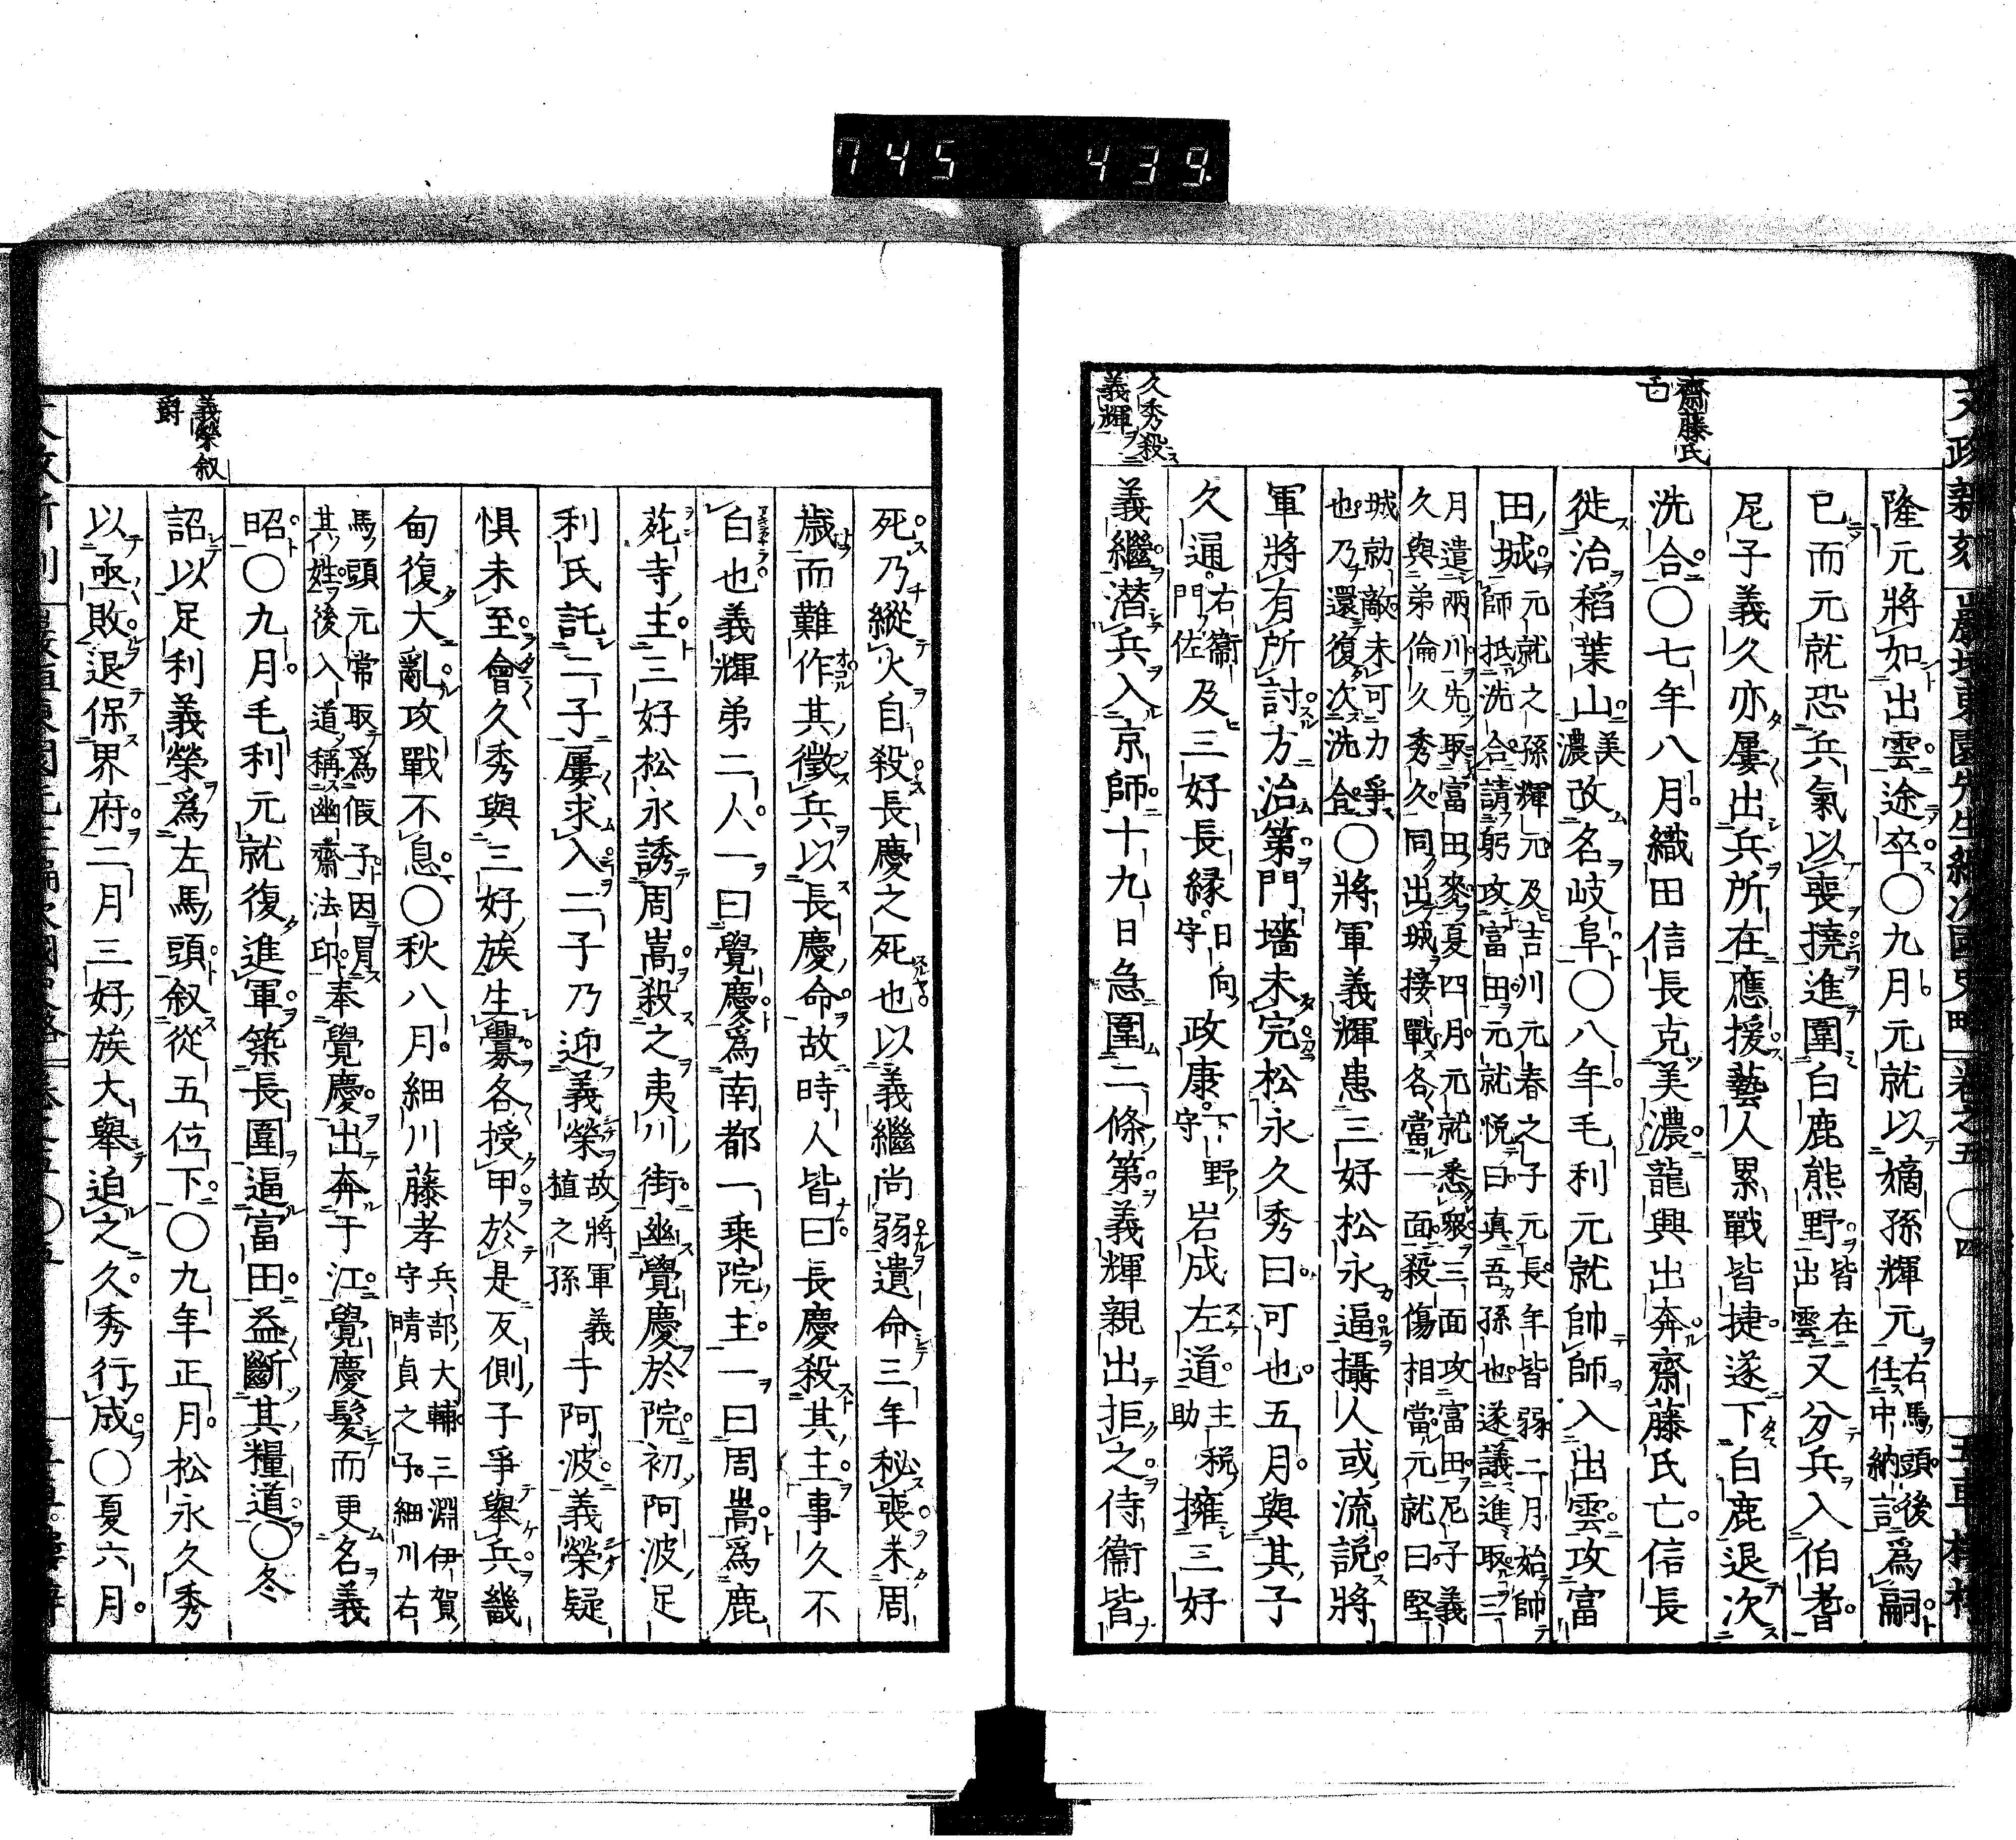 745 439.
齋藤氏
亡
久秀殺
義輝
隆元將如出雲途卒○九月元就以嫡孫輝元右馬頭後任中納言爲嗣
已而元就恐兵氣以喪撓進圍白鹿熊野皆在出雲又分兵入伯耆
尼子義久亦屢出兵所在應援藝人累戰皆捷遂下白鹿退次
洗合○七年八月織田信長克美濃龍興出奔齋藤氏亡信長
徙治稻葉山美濃改名岐阜○八年毛利元就帥師入出雲攻富
田城元就之孫輝元及吉川元春之子元長年皆弱二月始帥師抵洗合請躬攻富田元就悦曰真吾孫也遂議進取三
月遣兩川先取富田麥夏四月元就悉衆三面攻富田尼子義久與弟倫久秀久同出城接戰各當一面殺傷相當元就曰堅
城勍敵未可力爭也乃還復次洗合○將軍義輝患三好松永逼攝人或流説將
軍將有所討方治第門墻未完松永久秀曰可也五月與其子
久通右衞門佐及三好長縁日向守政康下野守岩成左道主税助擁三好
義繼潜兵入京師十九日急圍二條第義輝親出拒之侍衞皆
義榮叙
爵
死乃縱火自殺長慶之死也以義繼尚弱遺命三年秘喪未周
歳而難作其徵兵以長慶命故時人皆曰長慶殺其主事久不
白也義輝弟二人一曰覺慶爲南都一乘院主一曰周嵩爲鹿
苑寺主三好松永誘周嵩殺之夷川街幽覺慶於院初阿波足
利氏託二子屢求入二子乃迎義榮故將軍義植之孫于阿波義榮疑
惧未至會久秀與三好族生釁各授甲於是反側子爭擧兵畿
甸復大亂攻戰不息○秋八月細川藤孝兵部大輔三淵伊賀守晴貞之子細川右
馬頭元常取爲假子因冐其姓後入道稱幽齋法印奉覺慶出奔于江覺慶髮而更名義
昭○九月毛利元就復進軍築長圍逼富田益斷其糧道○冬
詔以足利義榮爲左馬頭叙從五位下○九年正月松永久秀
以亟敗退保界府二月三好族大擧迫之久秀行成○夏六月